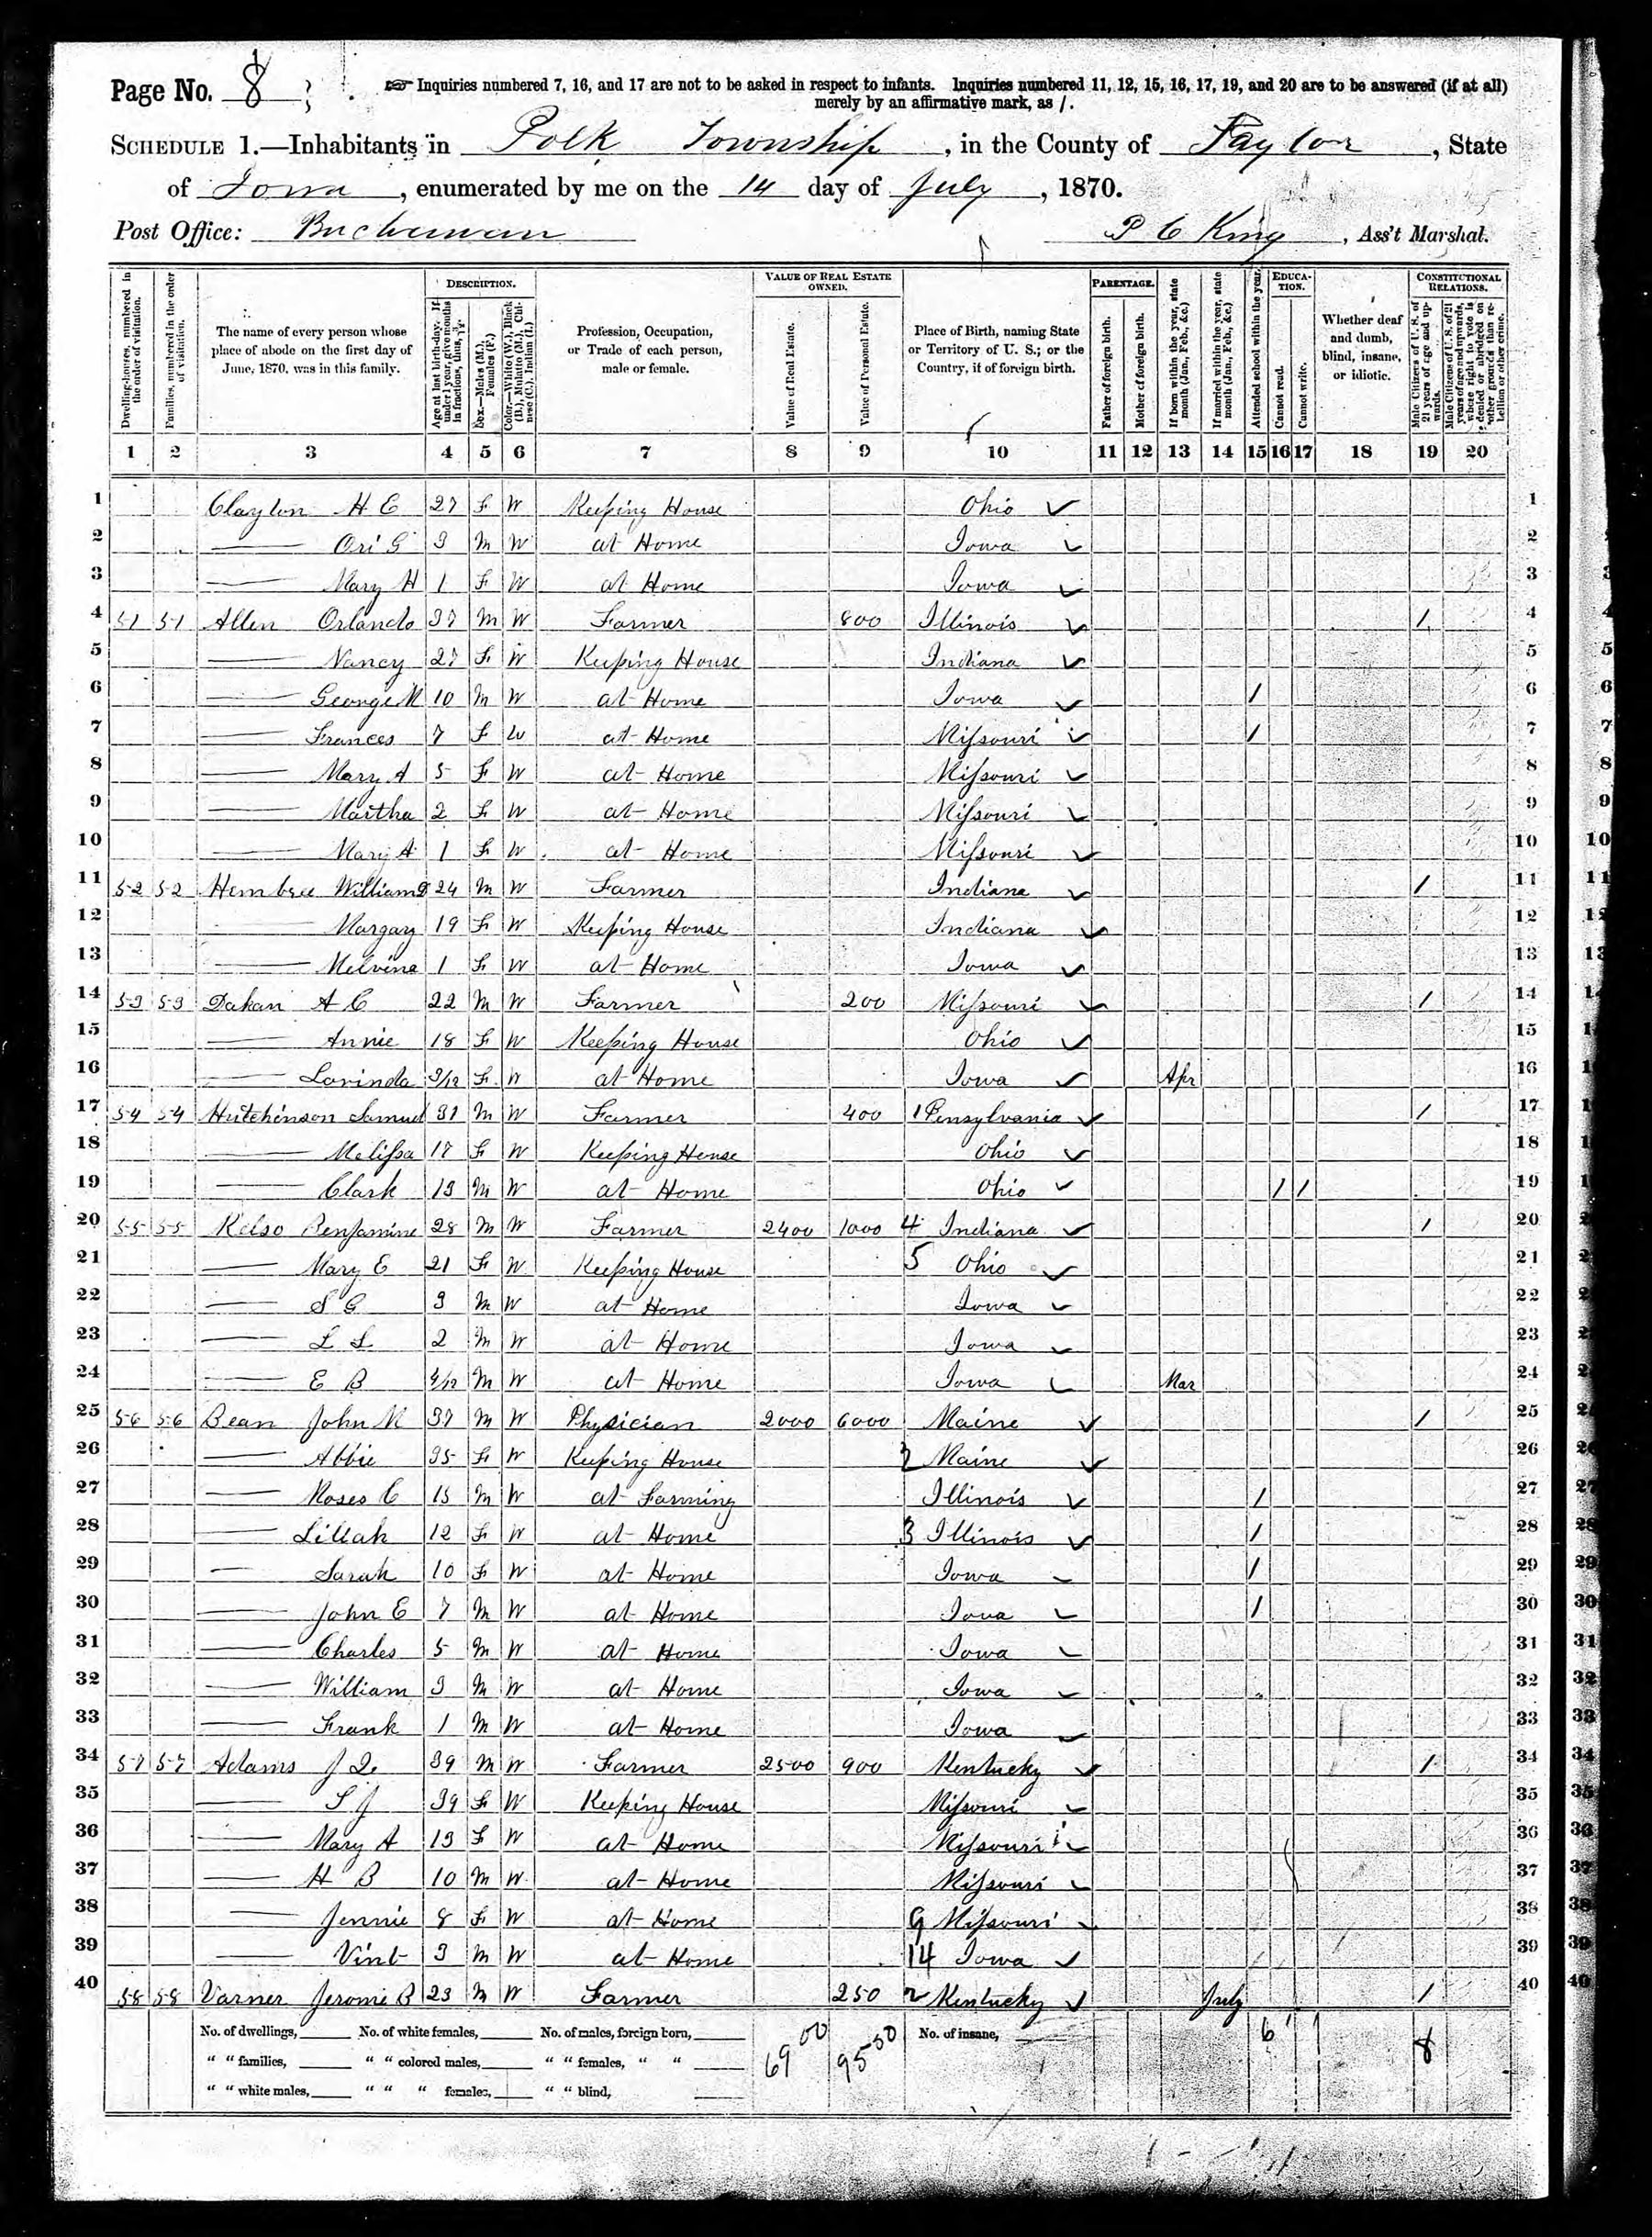 Page No. 8
☞ Inquiries numbered 7, 16, and 17 are not to be asked in respect to infants. Inquiries numbered 11, 12, 15, 16, 17, 19, and 20 are to be answered (if at all)
merely by an affirmative mark, as /.
SCHEDULE 1.—Inhabitants in Polk Township, in the County of Taylor, State
of Iowa, enumerated by me on the 14 day of July, 1870.
Post Office: Buchanan P C King, Ass't Marshal.
Dwelling-houses, numbered in the order of visitation.
Families, numbered in the order of visitation.
The name of every person whose place of abode on the first day of June, 1870, was in this family.
DESCRIPTION.
Age at last birth-day. If under 1 year, give months in fractions, thus,
Sex.—Males (M.), Females (F.)
Color.—White (W.), Black (B.), Mulatto (M.), Chinese (C.), Indian (I.)
Profession, Occupation, or Trade of each person, male or female.
VALUE OF REAL ESTATE OWNED.
Value of Real Estate.
Value of Personal Estate.
Place of Birth, naming State or Territory of U. S.; or the Country, if of foreign birth.
PARENTAGE.
Father of foreign birth.
Mother of foreign birth.
If born within the year, state month (Jan., Feb., &c.)
If married within the year, state month (Jan., Feb., &c.)
Attended school within the year.
EDUCATION.
Cannot read.
Cannot write.
Whether deaf and dumb, blind, insane, or idiotic.
CONSTITUTIONAL RELATIONS.
Male Citizens of U. S. of 21 years of age and upwards.
Male Citizens of U. S. of 21 years of age and upwards, whose right to vote is denied or abridged on other grounds than rebellion or other crime.
1 2 3 4 5 6 7 8 9 10 11 12 13 14 15 16 17 18 19 20
1 Clayton H E 27 F W Keeping House Ohio ✓ 1
2 —— Ori G 3 M W at Home Iowa ✓ 2
3 —— Mary H 1 F W at Home Iowa ✓ 3
4 51 51 Allen Orlando 37 M W Farmer 800 Illinois ✓ / 4
5 —— Nancy 27 F W Keeping House Indiana ✓ 5
6 —— George M 10 M W at Home Iowa ✓ / 6
7 —— Frances 7 F W at Home Missouri ✓ / 7
8 —— Mary A 5 F W at Home Missouri ✓ 8
9 —— Martha 2 F W at Home Missouri ✓ 9
10 —— Mary A 1 F W at Home Missouri ✓ 10
11 52 52 Hembree William 24 M W Farmer Indiana ✓ / 11
12 —— Margary 19 F W Keeping House Indiana ✓ 12
13 —— Melvina 1 F W at Home Iowa ✓ 13
14 53 53 Dakan A C 22 M W Farmer 200 Missouri ✓ / 14
15 —— Annie 18 F W Keeping House Ohio ✓ 15
16 —— Lovinda 3/12 F W at Home Iowa ✓ Apr 16
17 54 54 Hutchinson Samuel 31 M W Farmer 400 1 Pensylvania ✓ / 17
18 —— Melissa 17 F W Keeping House Ohio ✓ 18
19 —— Clark 13 M W at Home Ohio ✓ / / 19
20 55 55 Kelso Benjamine 28 M W Farmer 2400 1000 4 Indiana ✓ / 20
21 —— Mary E 21 F W Keeping House 5 Ohio ✓ 21
22 —— S G 3 M W at Home Iowa ✓ 22
23 —— L L 2 M W at Home Iowa ✓ 23
24 —— E B 4/12 M W at Home Iowa ✓ Mar 24
25 56 56 Bean John M 37 M W Physician 2000 6000 Maine ✓ / 25
26 —— Abbie 35 F W Keeping House 2 Maine ✓ 26
27 —— Moses C 15 M W at Farming Illinois ✓ / 27
28 —— Lillah 12 F W at Home 3 Illinois ✓ / 28
29 —— Sarah 10 F W at Home Iowa ✓ / 29
30 —— John E 7 M W at Home Iowa ✓ / 30
31 —— Charles 5 M W at Home Iowa ✓ 31
32 —— William 3 M W at Home Iowa ✓ 32
33 —— Frank 1 M W at Home Iowa ✓ 33
34 57 57 Adams J Q 39 M W Farmer 2500 900 Kentucky ✓ / 34
35 —— S J 39 F W Keeping House Missouri ✓ 35
36 —— Mary A 13 F W at Home Missouri ✓ 36
37 —— H B 10 M W at Home Missouri ✓ 37
38 —— Jennie 8 F W at Home 9 Missouri ✓ 38
39 —— Vint 3 M W at Home 14 Iowa ✓ 39
40 58 58 Varner Jerome B 23 M W Farmer 250 2 Kentucky ✓ July / 40
No. of dwellings, No. of white females, No. of males, foreign born, 6900 9550 No. of insane, 6 8
" " families, " " colored males, " " females, " "
" " white males, " " " females, " " blind,